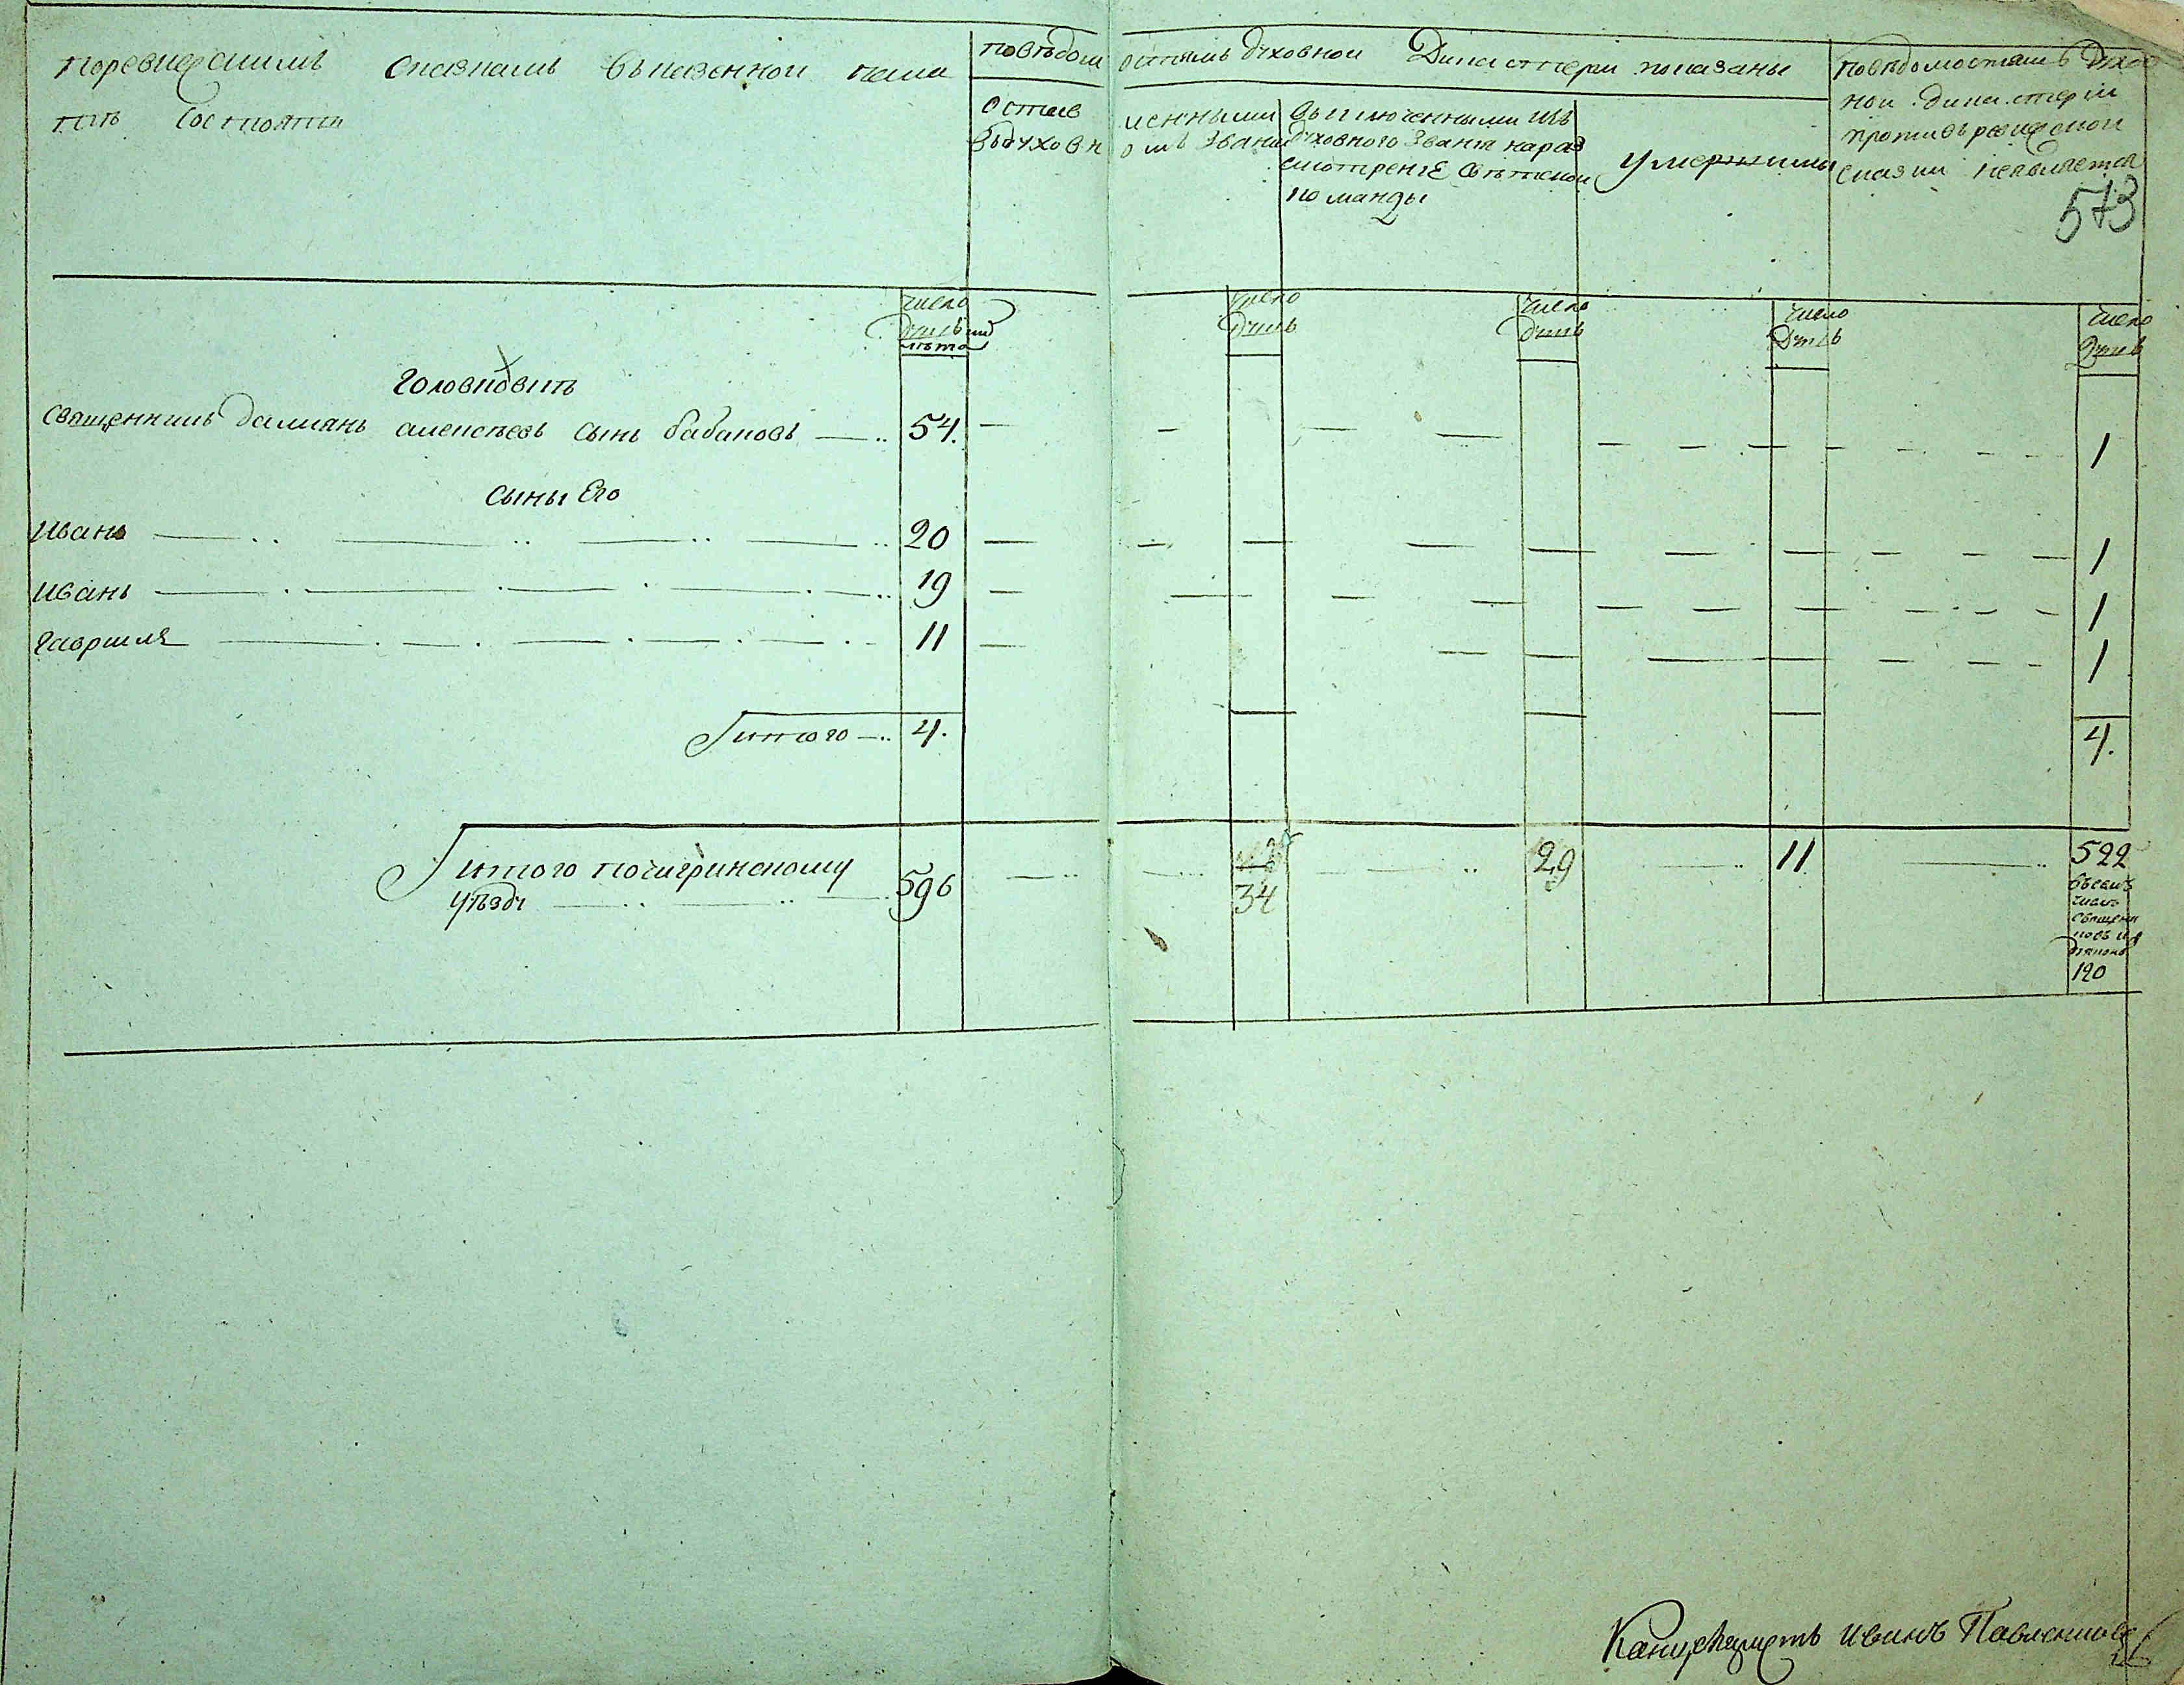 Поревизскимъ Сказкамъ въ казенной пала
тѣ Состоятъ
повѣдом остямъ духовной Дикастерїи показаны
Остав ленными
въдуховн омъ званїи
выключенными изъ
духовного званїя нараз
смотренїе свѣтской
команды
умершими
повѣдомостямъ Духов
ной дикастерїи
противъ ревизской
сказки неявляется
573
число
душъ ии
лѣта
число
душъ
число
душъ
число
душъ
число
душъ
Головковкѣ
Священникъ дамианъ алексѣевъ сынъ бабаковъ 54. 1
сыны Его
Иванъ 20 1
Иванъ 19 1
гаврила 11 1
Итого 4. 4.
Итого почигринскому
уѣзду 596 34 29 11 522
въсемъ
числѣ
священи
ковъ и д
дьяковъ
120
Канцеляристъ Иванъ Павленковъ